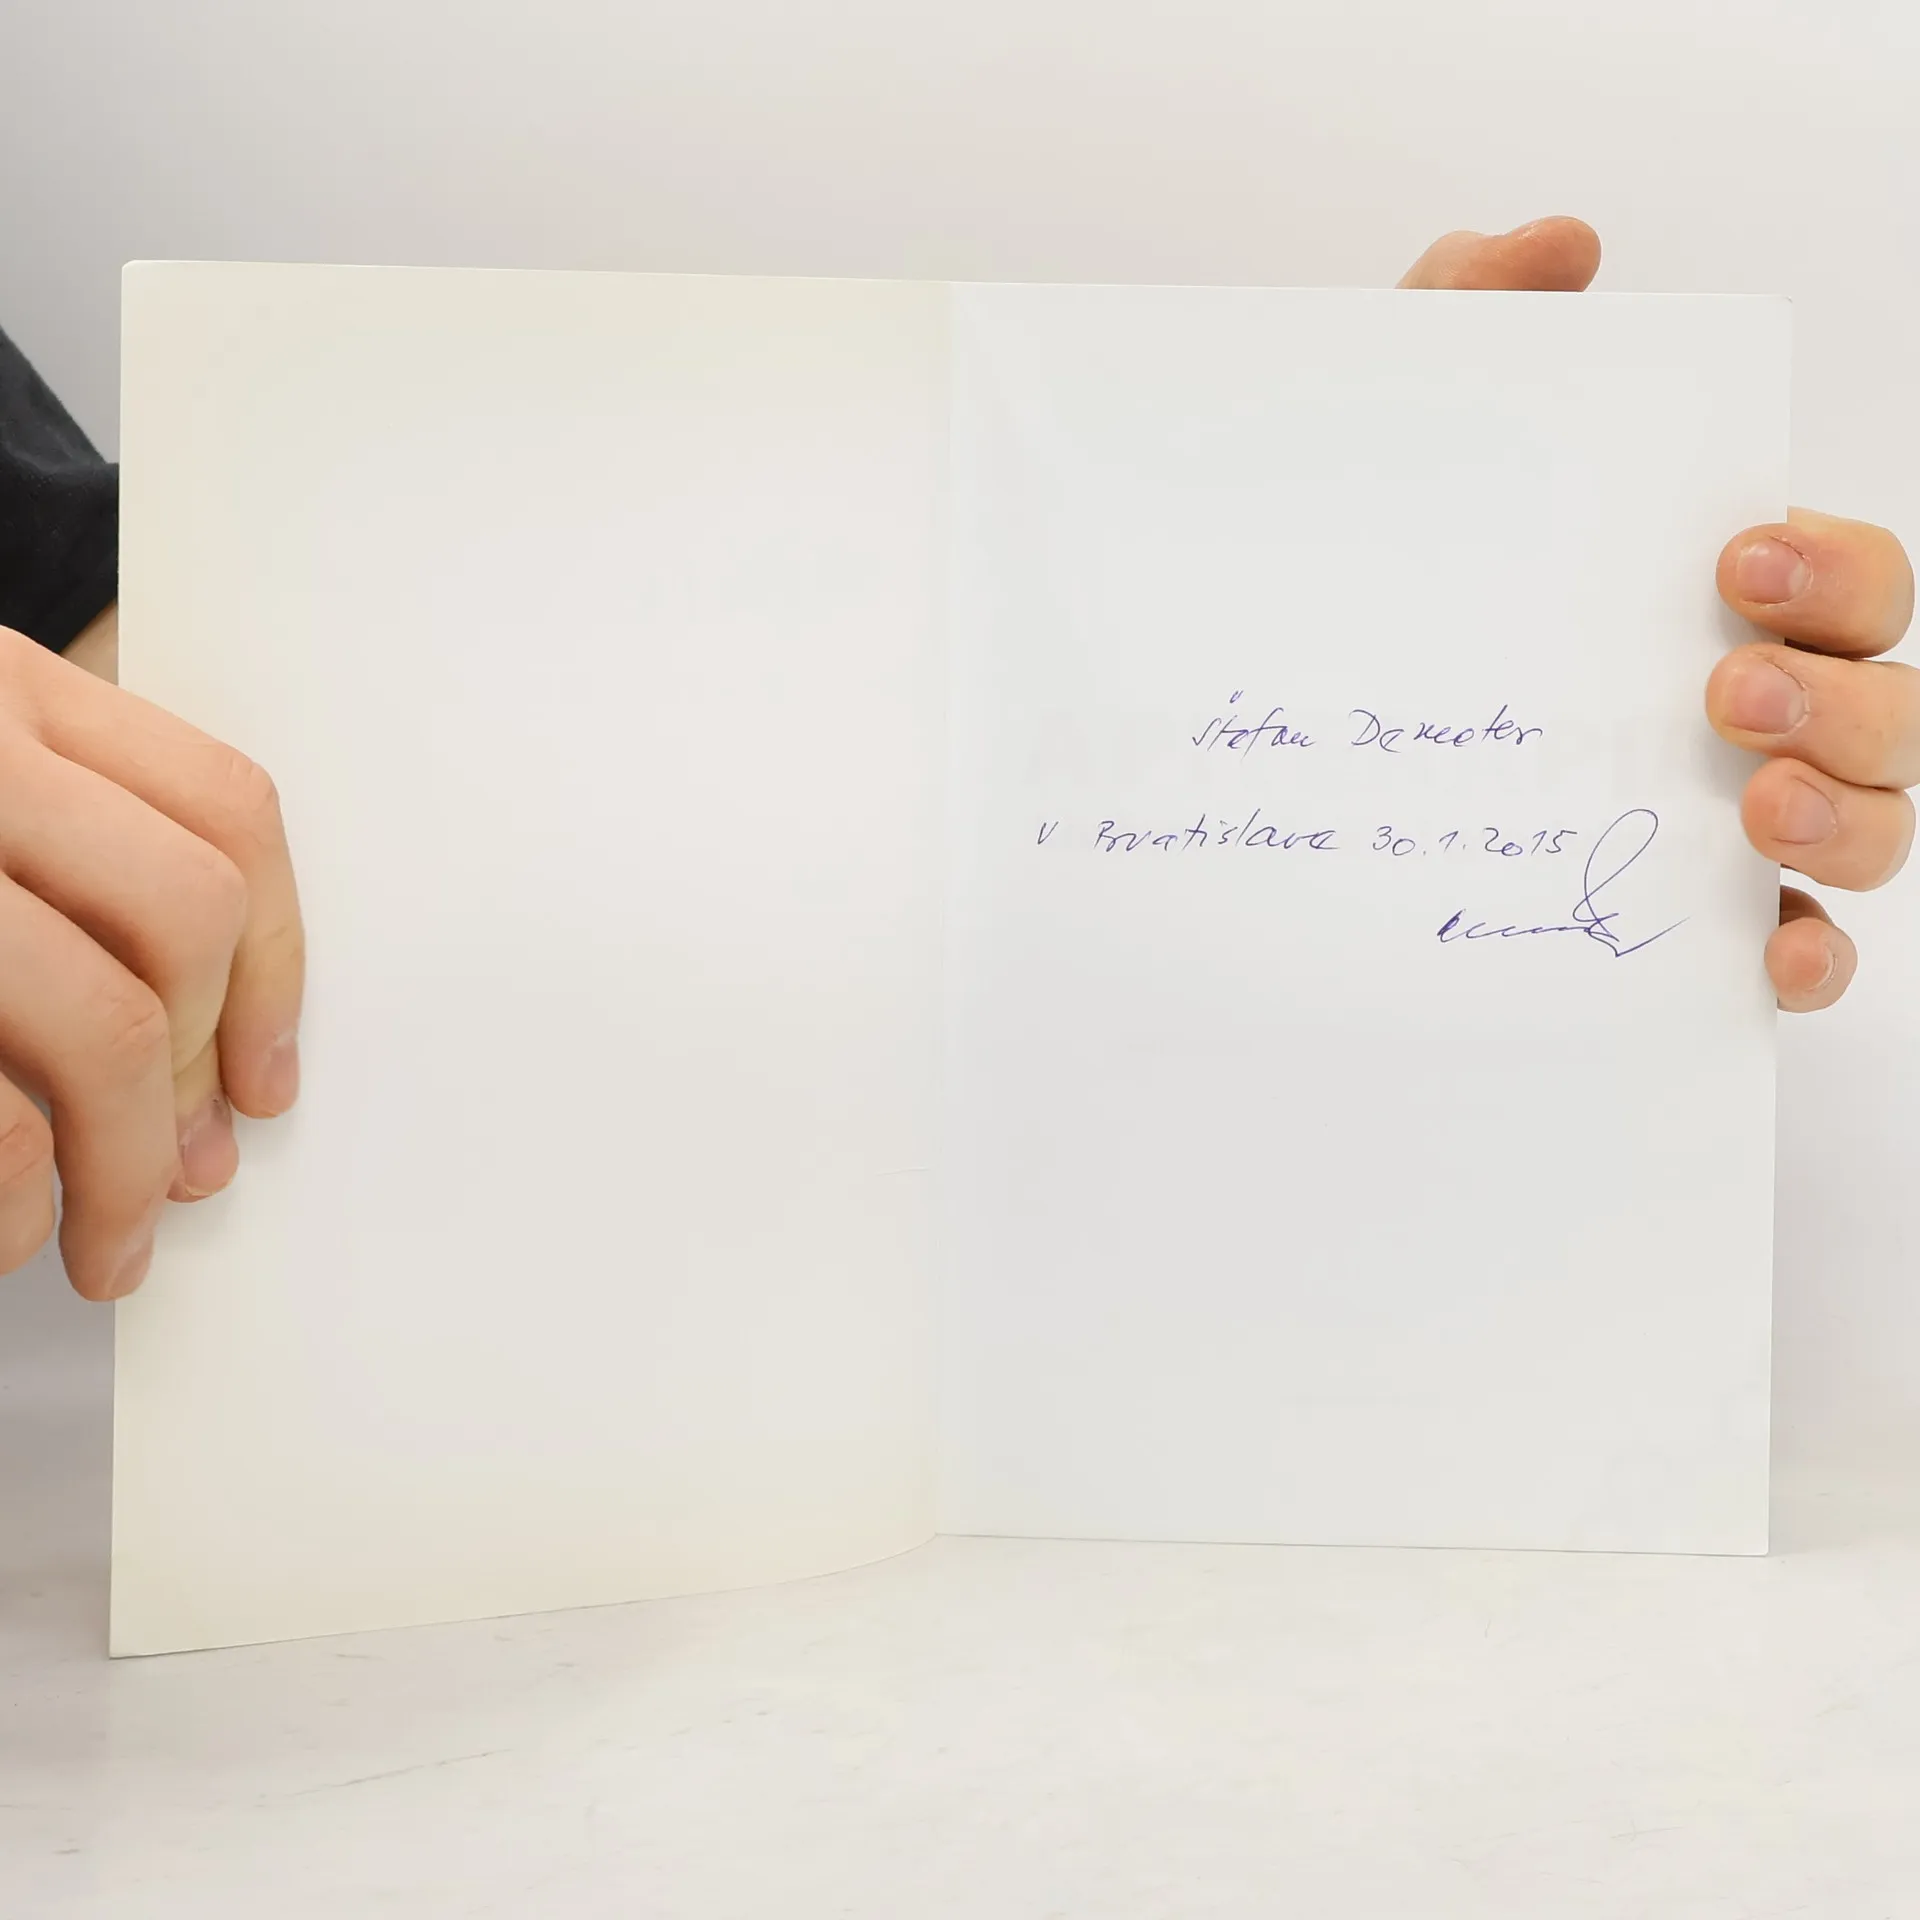 Štefan Demeter
V Bratislave 30.1.2015